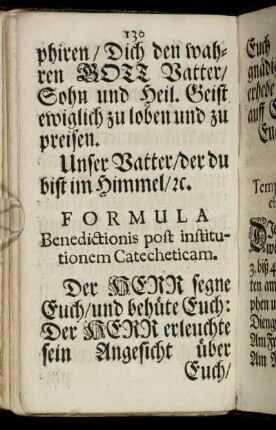 130
phiren / Dich den wah-
ren GOTT Vatter /
Sohn und Heil. Geist
ewiglich zu loben und zu
preisen.
Unser Vatter / der du
bist im Himmel / ꝛc.
FORMULA
Benedictionis post institu-
tionem Catecheticam.
Der HERR segne
Euch / und behüte Euch:
Der HERR erleuchte
sein Angesicht über
Euch /
Euch
gnädig
erhebe
auff
Temp
3. biß 4
ten am
phen u
Dienst
Am Fr
Am